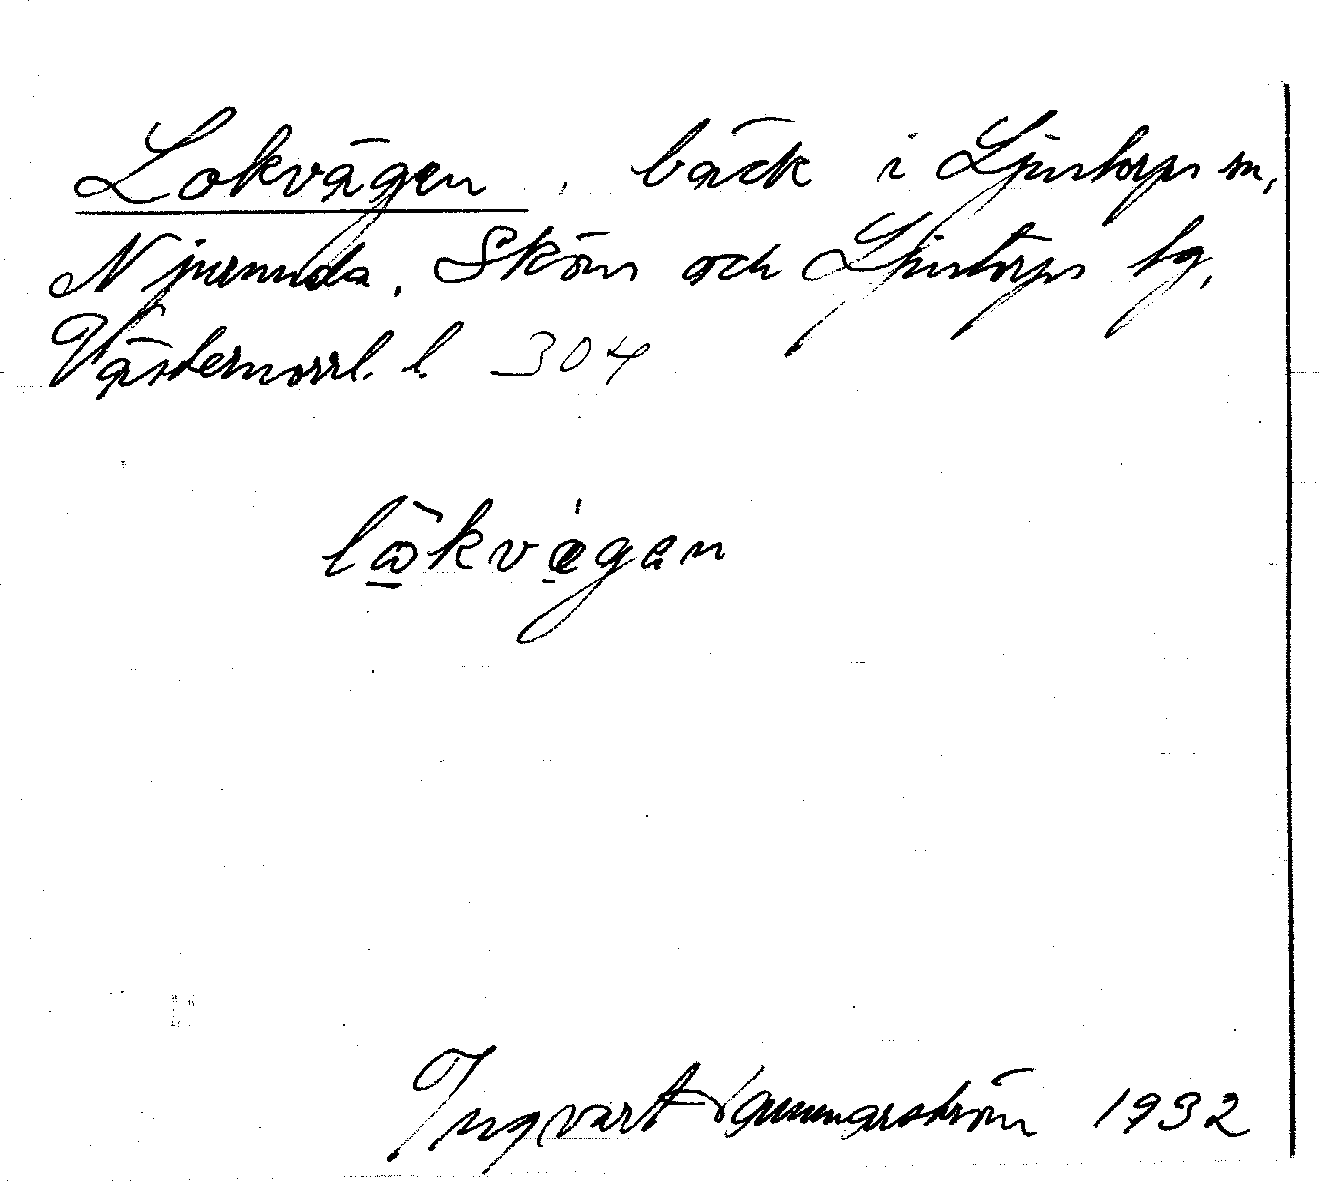 Lokvägen, bäck i Ljustorps sn,
Njurunda, Sköns och Ljustorps tg,
Västernorrl. l. 304
lökvägen
Ingvart 1932